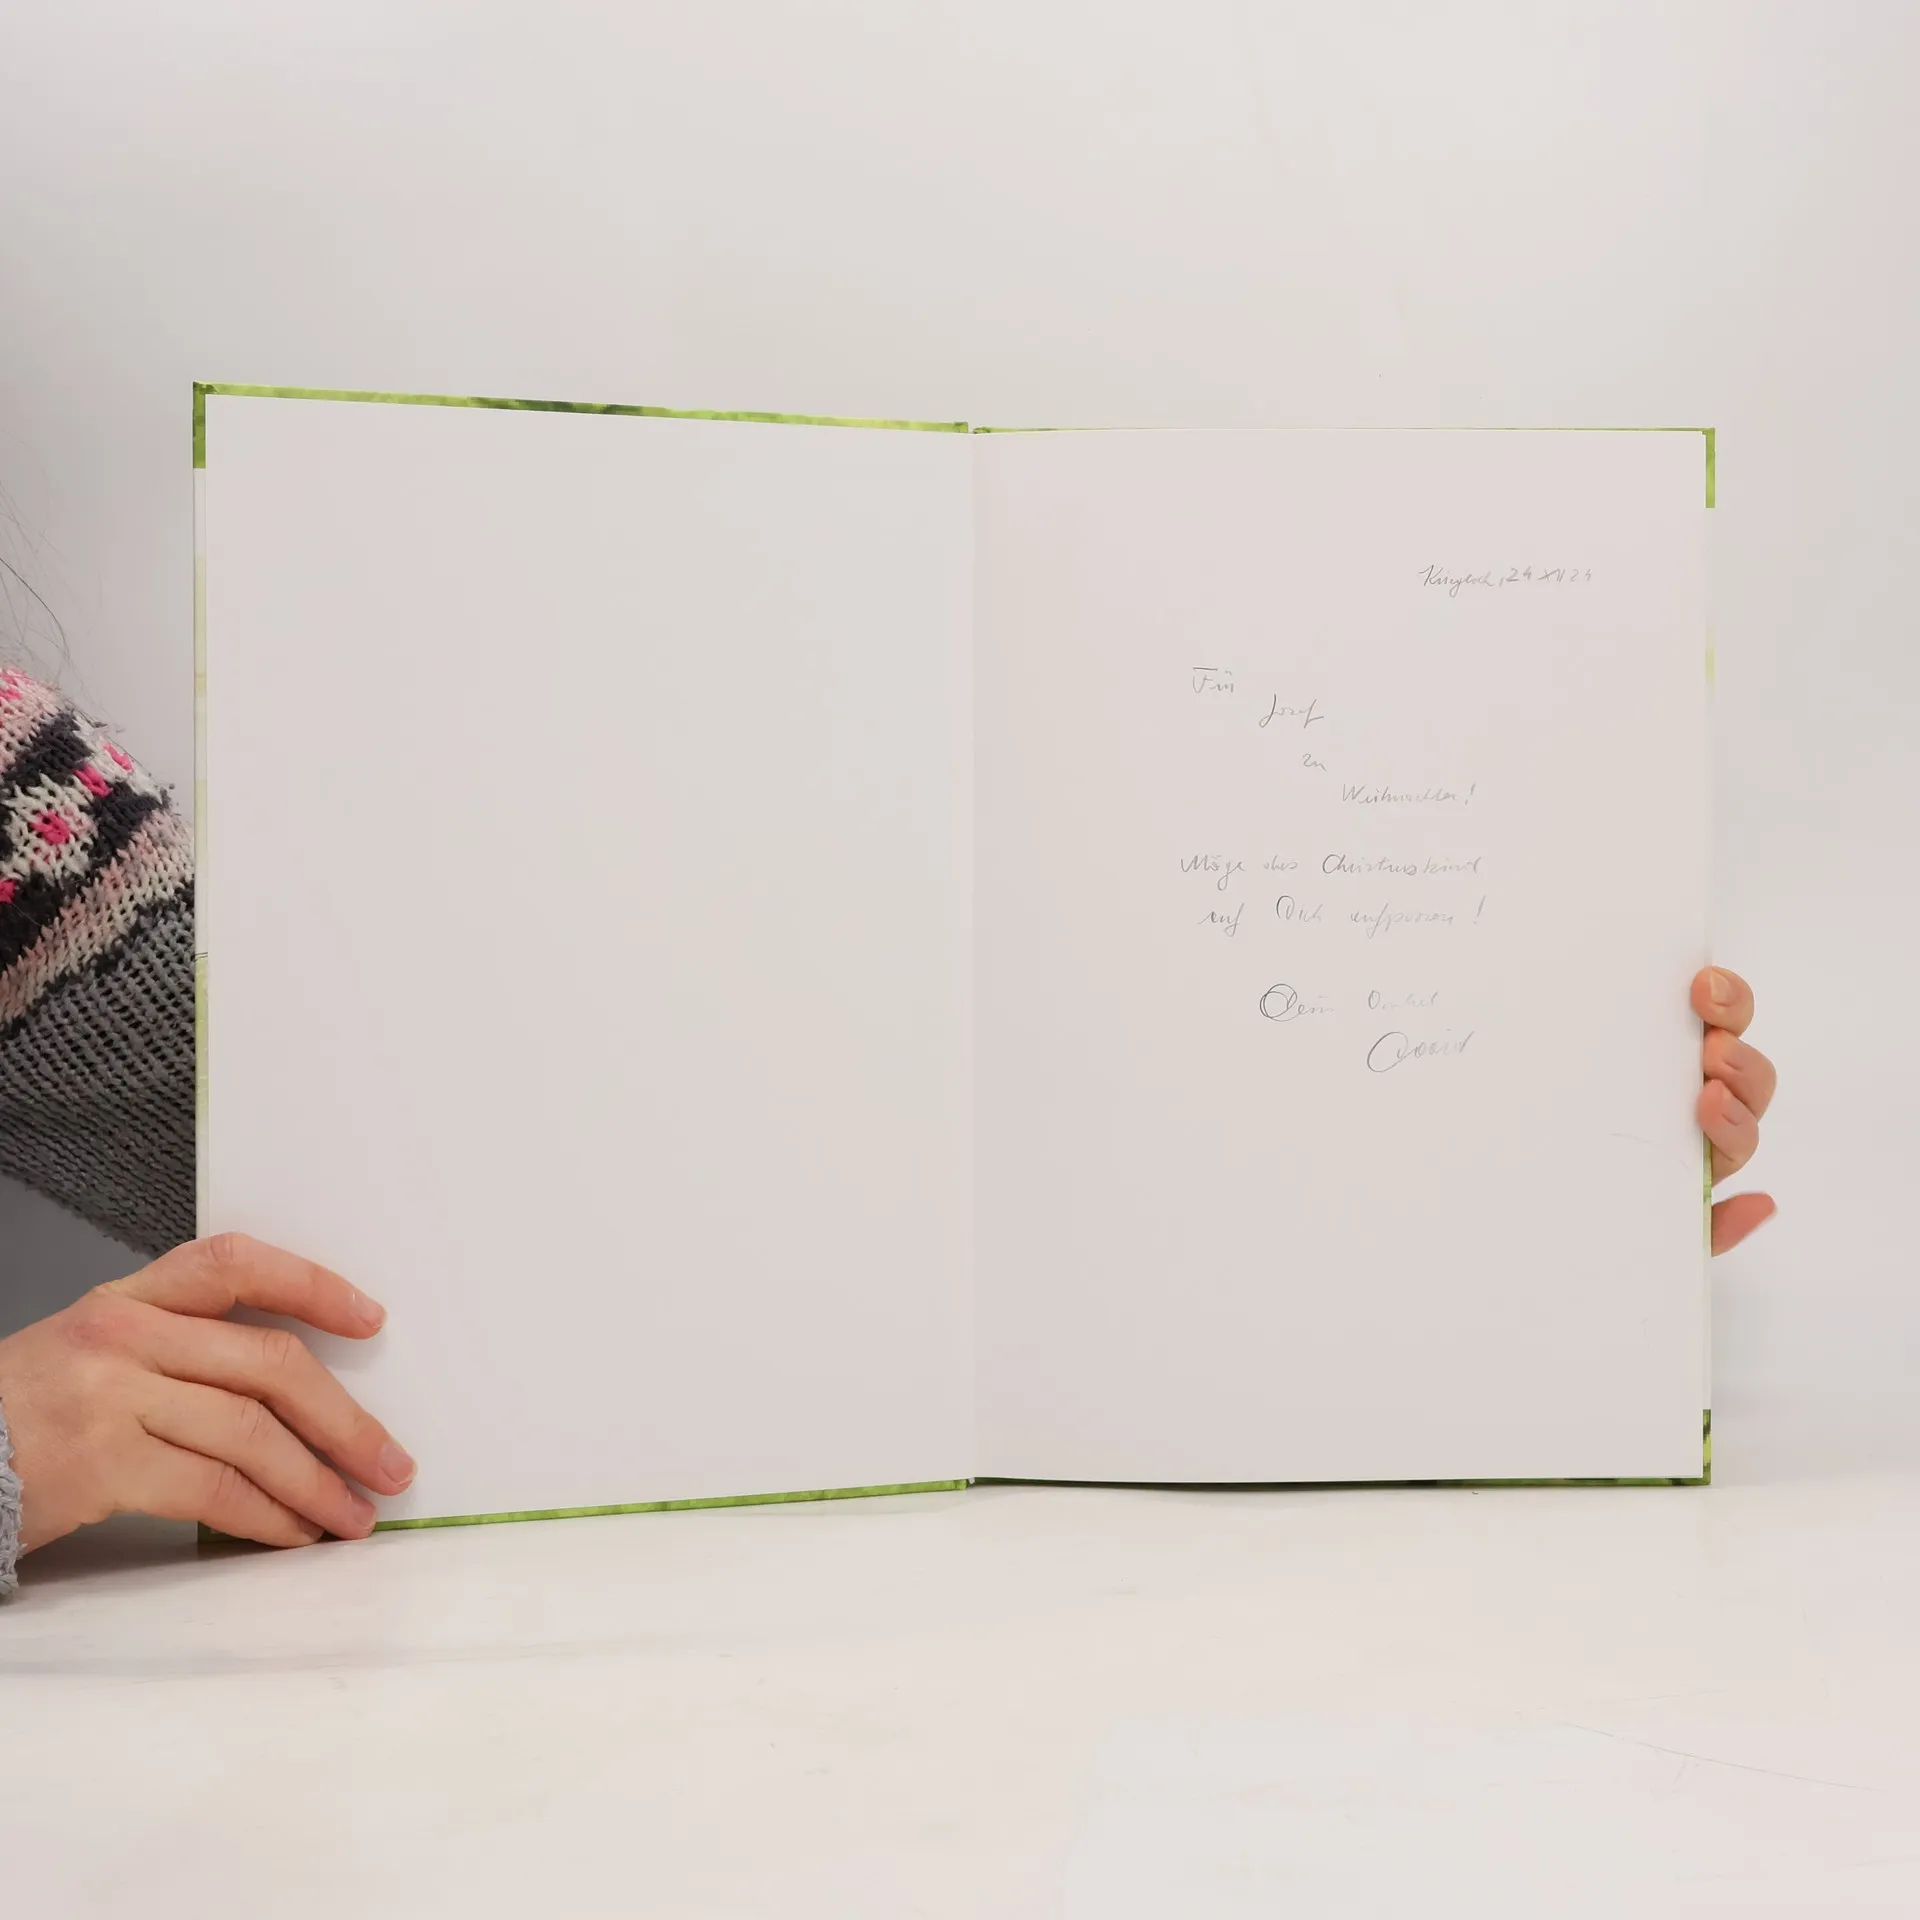 Krieglach, 24 XII 24
Für
Josef
zu
Weihnachten!
Möge das Christuskind
auf Dich aufpassen!
Dein Onkel
David